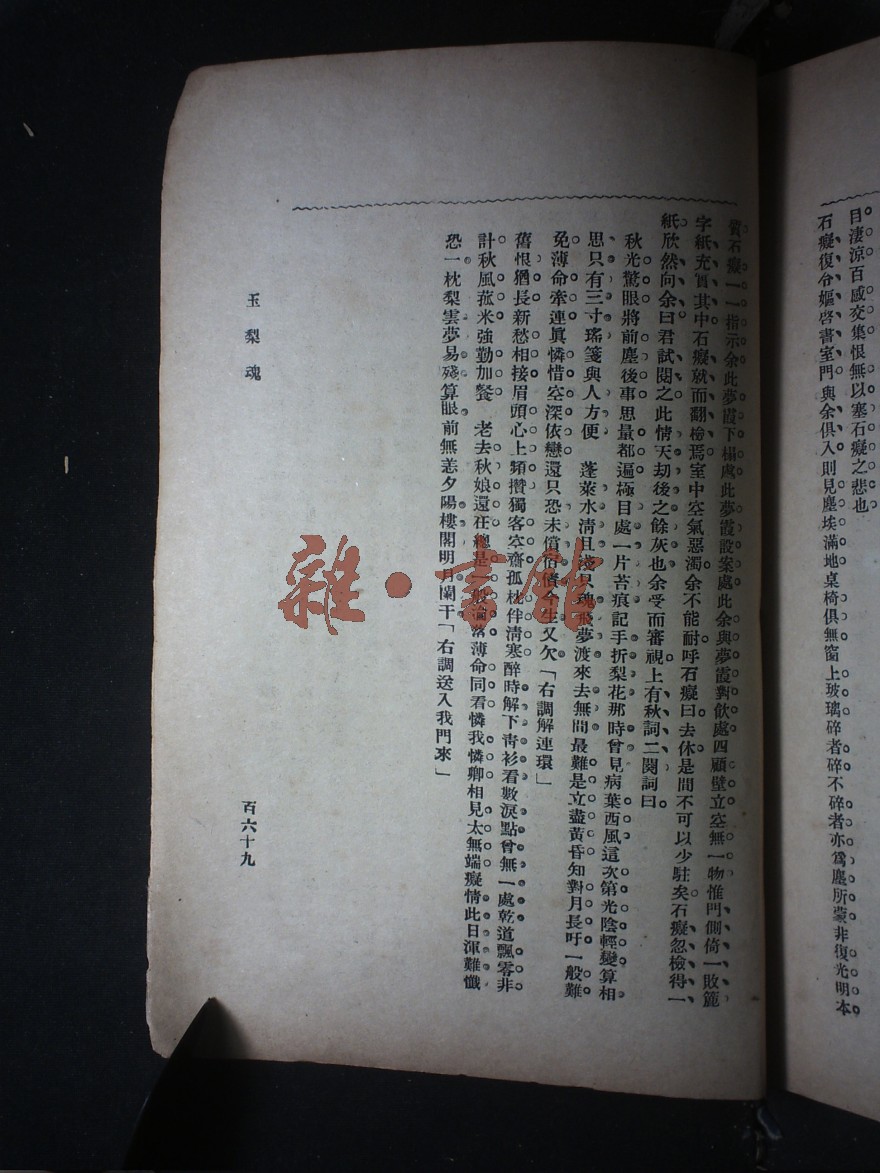 目淒涼百感交集恨無以塞石癡之悲也
石癡復令嫗啓書室門與余俱入則見塵埃滿地桌椅俱無窗上玻璃碎者碎不碎者亦爲塵所蒙非復光明本
質石癡一一指示余此夢霞下榻處此夢霞設案處此余與夢霞對飲處四顧壁立空無一物惟門側倚一敗簏
字紙充實其中石癡就而翻檢焉室中空氣惡濁余不能耐呼石癡曰去休是間不可以少駐矣石癡忽檢得一
紙欣然向余曰君試閱之此情天劫後之餘灰也余受而審視上有秋詞二闋詞曰
秋光驚眼將前塵後事思量都遍極目處一片苔痕記手折梨花那時曾見病葉西風這次第光陰輕變算相
思只有三寸瑤箋與人方便　蓬萊水清且淺只魂飛夢渡來去無間最難是立盡黃昏知對月長吁一般難
免薄命牽連眞憐惜空深依戀還只恐未償宿債今生又欠「右調解連環」
舊恨猶長新愁相接眉頭心上頻攢獨客空齋孤枕伴淸寒醉時解下靑衫看數淚點曾無一處乾道飄零非
計秋風菰米強勤加餐　老去秋娘還在總是一般淪落薄命同看憐我憐卿相見太無端癡情此日渾難懺
恐一枕梨雲夢易殘算眼前無恙夕陽樓閣明月闌干「右調送入我門來」
玉梨魂
百六十九
雜·書館